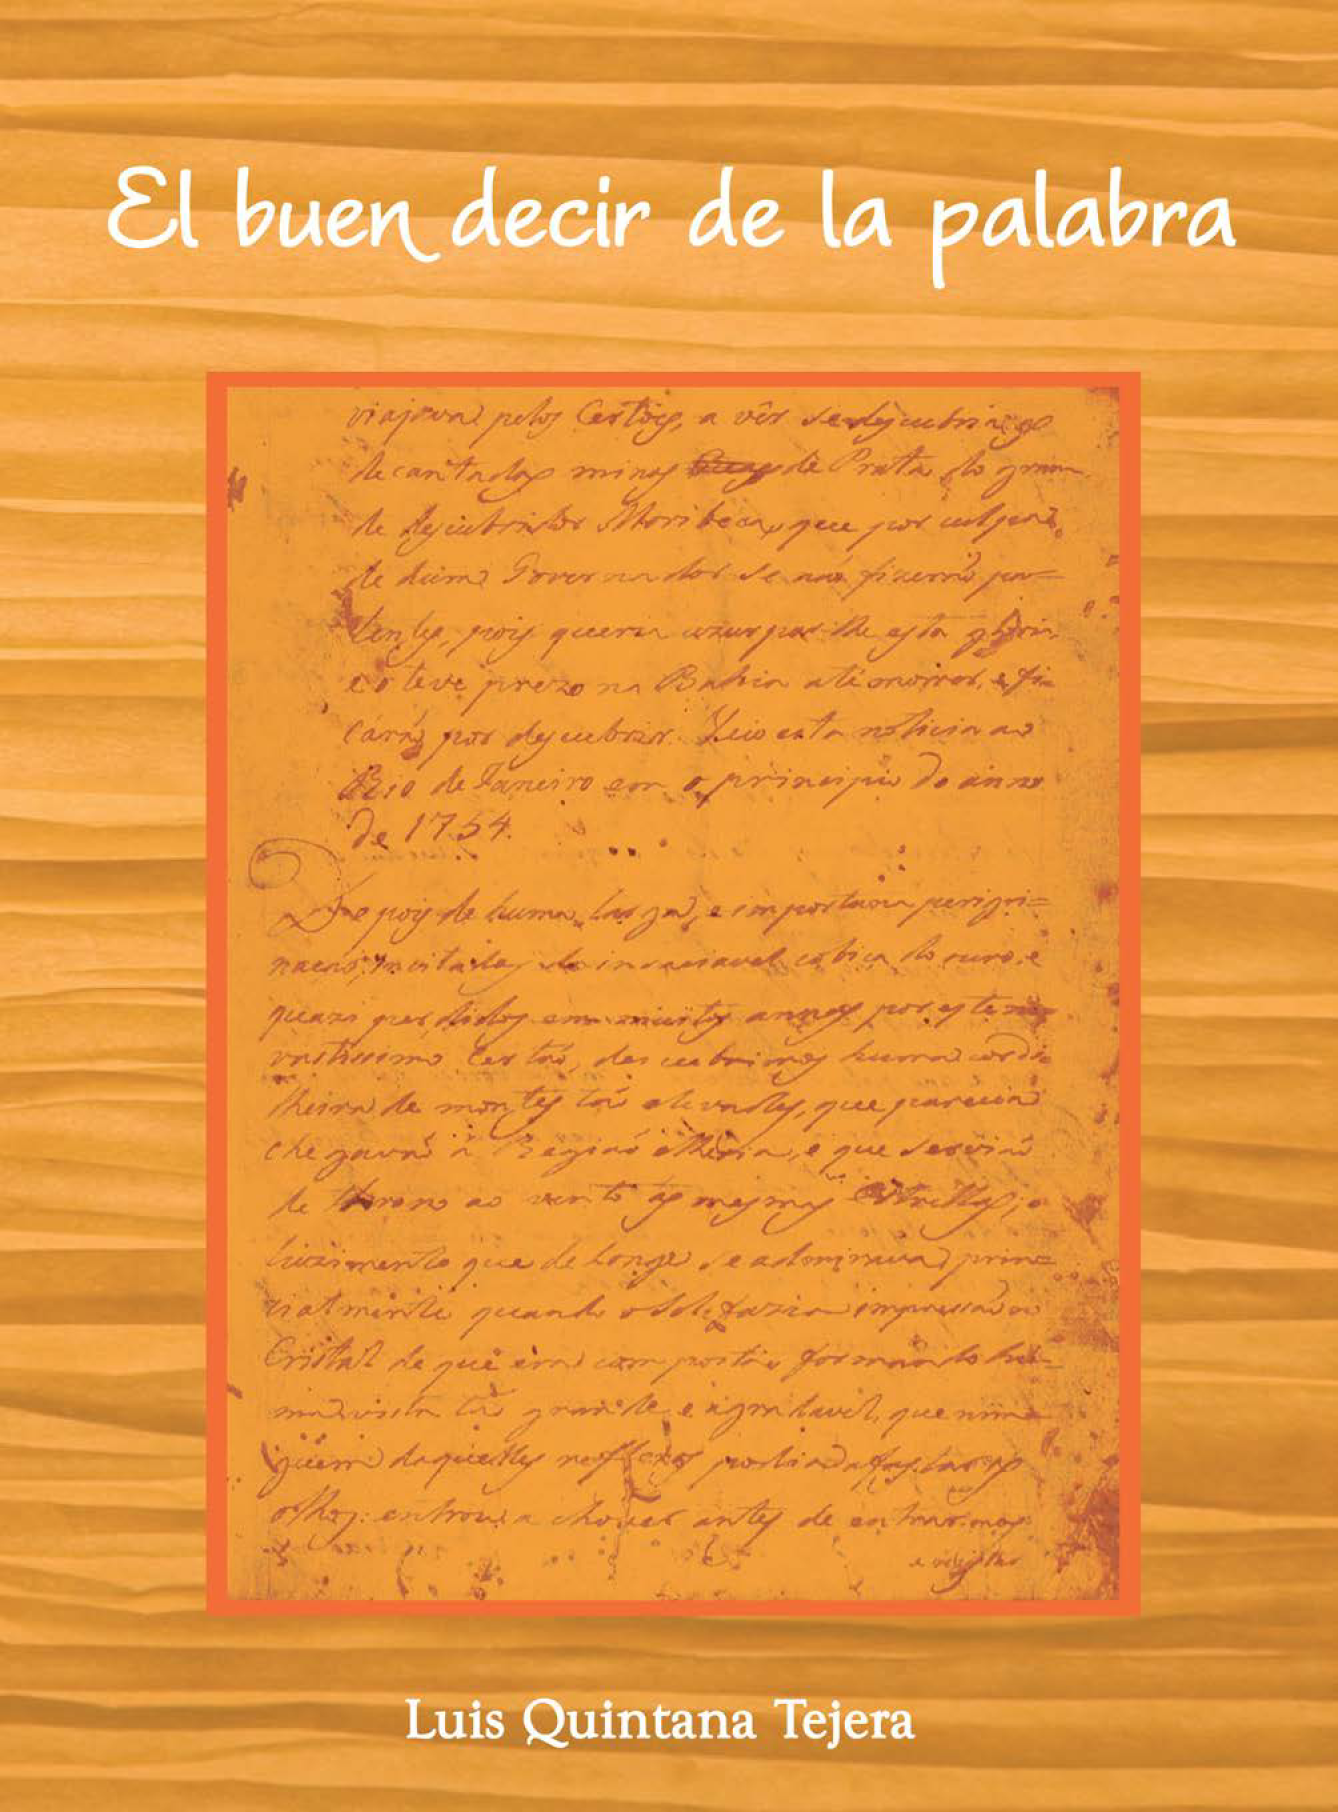 El buen decir de la palabra
viajava pelos Certoẽs, a vêr se descubria as
decantadas minas de Prata do gran
de descubridor Moribeca, que por culpa
de hum Governador se naõ fizeraõ pa=
tentes, pois queria uzurparlhe esta gloria
e o teve prezo na Bahia até morrer, e fi=
caraõ por descubrir. Veio esta noticia ao
Rio de Janeiro em o principio do anno
de 1754.
Depois de huma larga, e importuna perigri=
naçaõ, incitados da insaciavel cobiça do ouro, e
quazi perdidos em muitos annos por este
vastissimo Certaõ, descubrimos huma cordi
lheira de montes taõ elevados, que parecia
chegavaõ á Regiaõ etheria, e que serviaõ
de throno ao vento ás mesmas Estrellas; o
luzimento que de longe se admirava, prin=
cialmente quando o Sol fazia impressaõ ao
Cristal de que era composta, formando hu=
ma vista taõ grande e agradavel, que nin=
guem daquelles reflexos podia afastar os
olhos: entrou a chover antes de entrarmos
Luis Quintana Tejera